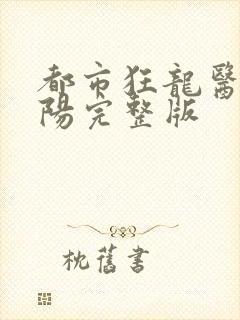 都市狂龍醫
陽完整版
枕舊書